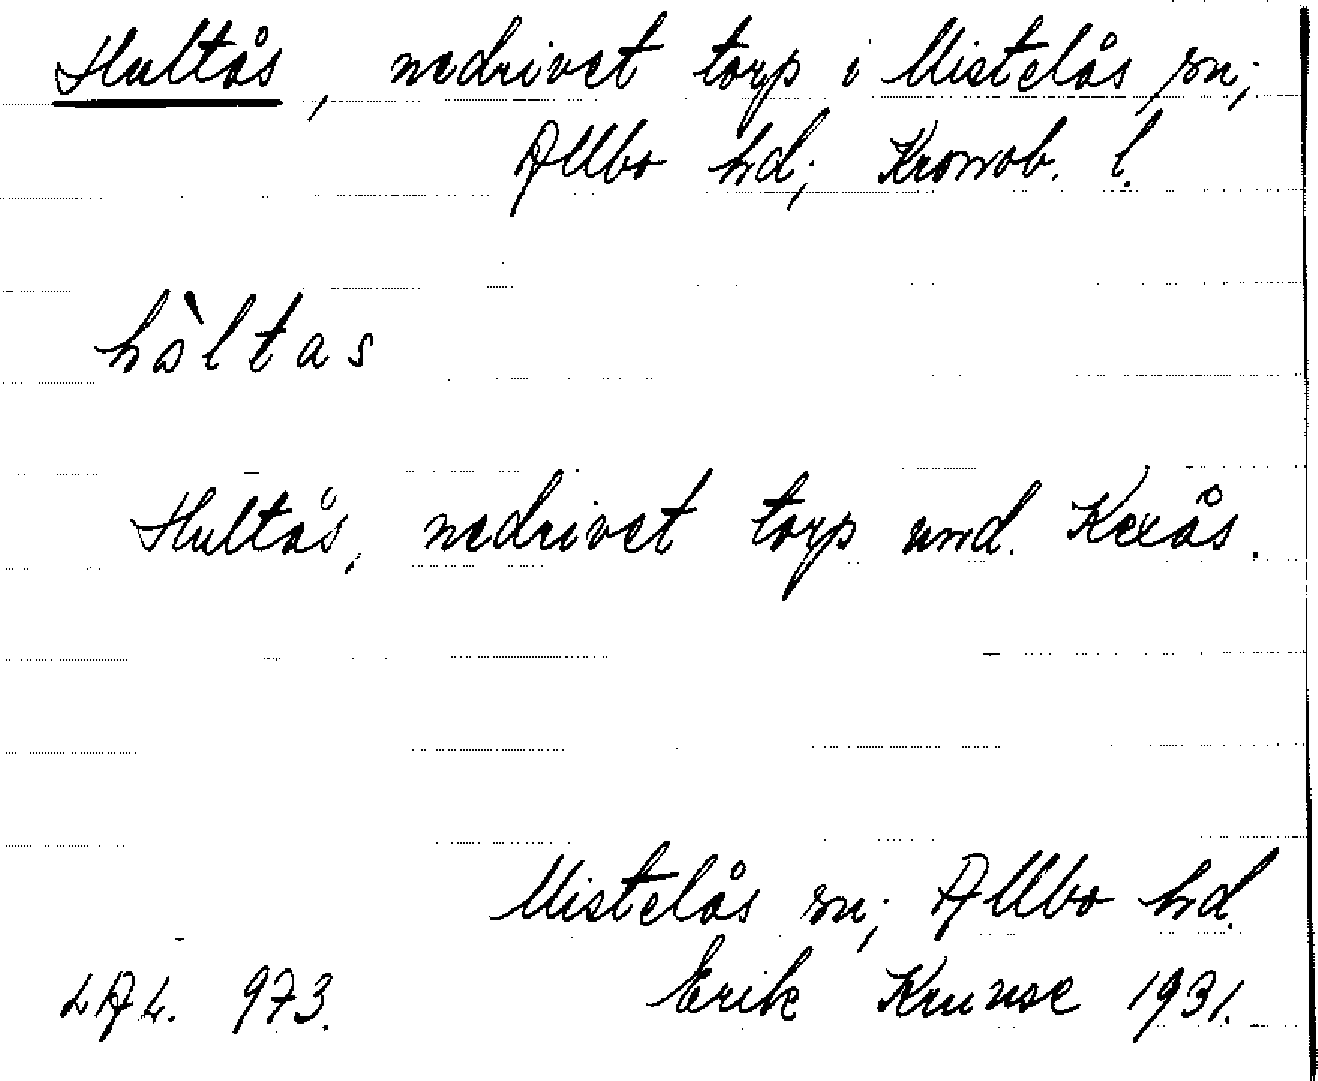 Hultås, nedrivet torp i Mistelås sn;
Allbo hd; Kronob. l.
hòltas
Hultås, nedrivet torp und. Kexås.
Mistelås sn; Allbo hd.
LAL. 973. Erik Kruuse 1931.